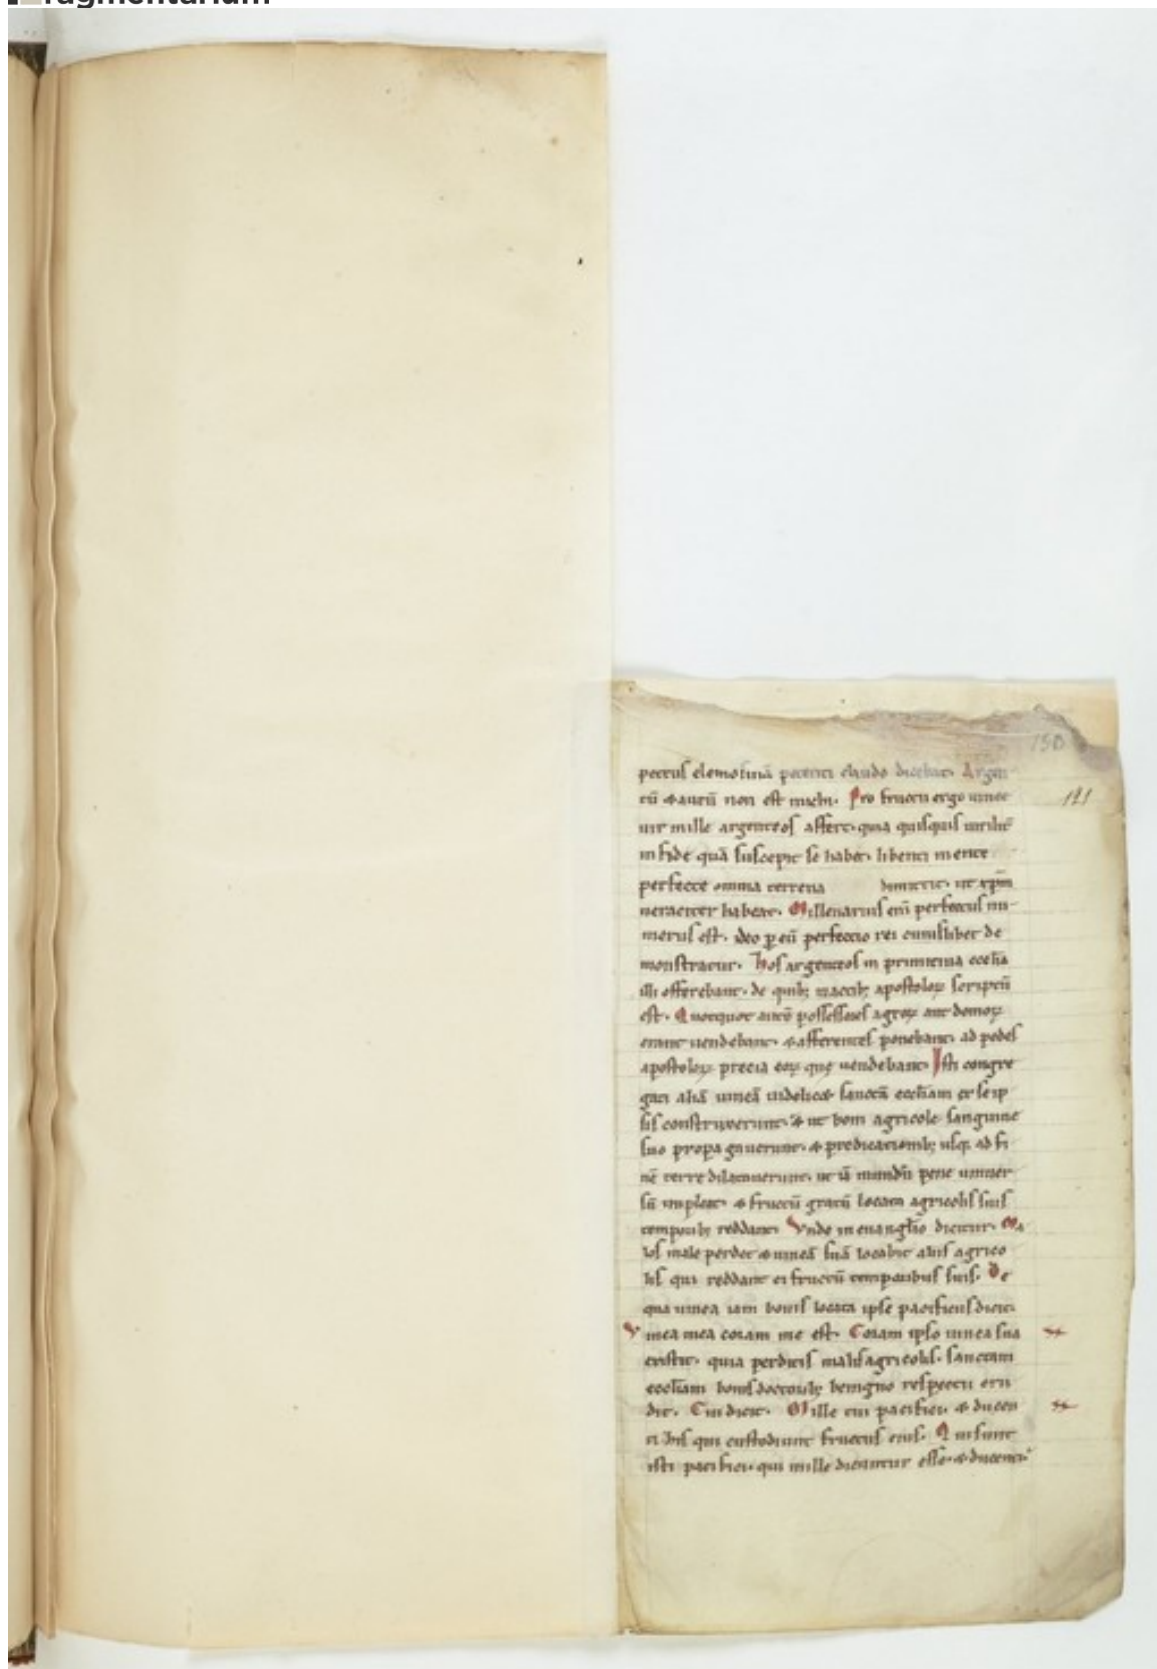 ragmentarium
150
petrus elemosinā petenti claudo dicebat. Argen
tū & aurū non est michi. Pro fructu ergo uineę 121
uir mille argenteos affert. quia quisquis uirilit̄
in fide quā suscepit se habet. libenti mente
perfecte omnia terrena dimittit. ut xp̄m
ueraciter habeat. Millenarius eni perfectus nu
merus est. ideo ꝑ eū perfectio rei cuiuslibet de
monstratur. Hos argenteos in primitiua eccl̄ia
illi offerebant. de quibꝫ in actibꝫ apostoloꝝ scriptū
est. Quotquot autē possessores agroꝝ aut domoꝝ
erant uendebant. & afferentes ponebant ad pedes
apostoloꝝ precia eoꝝ quę uendebant. Isti congre
gati aliā uineā uidelicet sanctā eccl̄iam ex se ip
sis construxerunt. & ut boni agricole sanguine
suo propagauerunt. & predicationibꝫ usqꝫ ad fi
nē terre dilatauerunt. ut iā mundū pene uniuer
sū impleat. & fructū gratū locata agricolis suis
temporibꝫ reddat. Vnde in euangl̄io dicitur. Ma
los male perdet & uineā suā locabit aliis agrico
lis qui reddant ei fructū temporibus suis. De
qua uinea iam bonis locata ipse pacificus dicit.
Vinea mea coram me est. Coram ipso uinea sua
existit. quia perditis malis agricolis. sanctam
eccl̄iam bonis doctoribꝫ benigno respectu eru
dit. Cui dicit. Mille tui pacifici. & ducen
ti his qui custodiunt fructus eius. Qui sunt
isti pacifici. qui mille dicuntur esse. & ducenti.